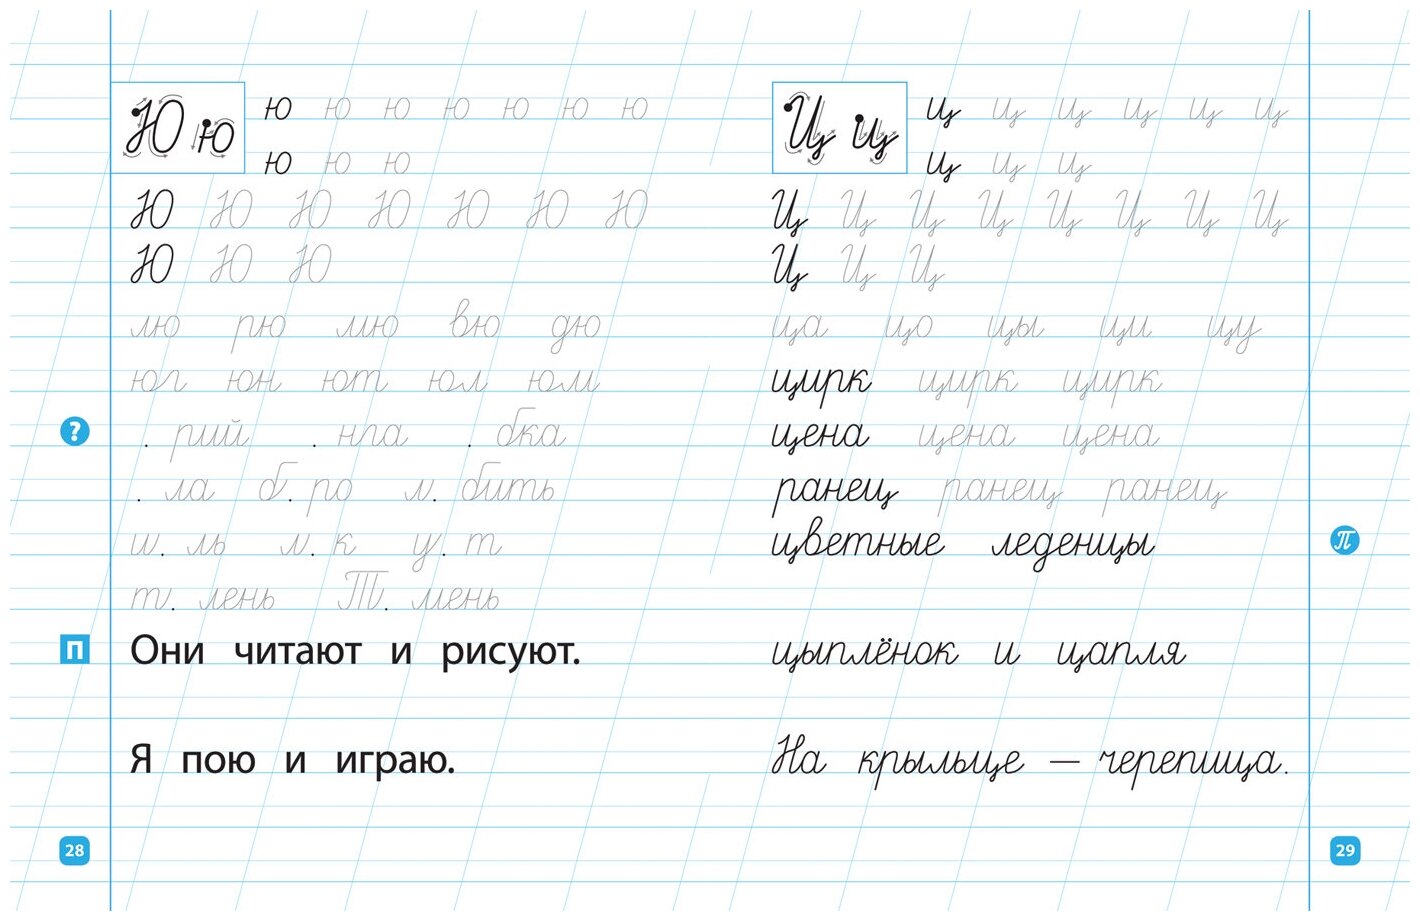 Ю ю ю ю ю ю ю ю ю
ю ю ю
Ю Ю Ю Ю Ю Ю Ю
Ю Ю Ю
лю рю мю вю дю
юг юн ют юл юм
?
. рий . нга . бка
. ла б. ро л. бить
ш. ль л. к у. т
т. лень Т. мень
П
Они читают и рисуют.
Я пою и играю.
28
Ц ц ц ц ц ц ц ц
ц ц ц
Ц Ц Ц Ц Ц Ц Ц Ц
Ц Ц Ц
ца цо цы ци цу
цирк цирк цирк
цена цена цена
ранец ранец ранец
цветные леденцы
П
цыплёнок и цапля
На крыльце — черепица.
29